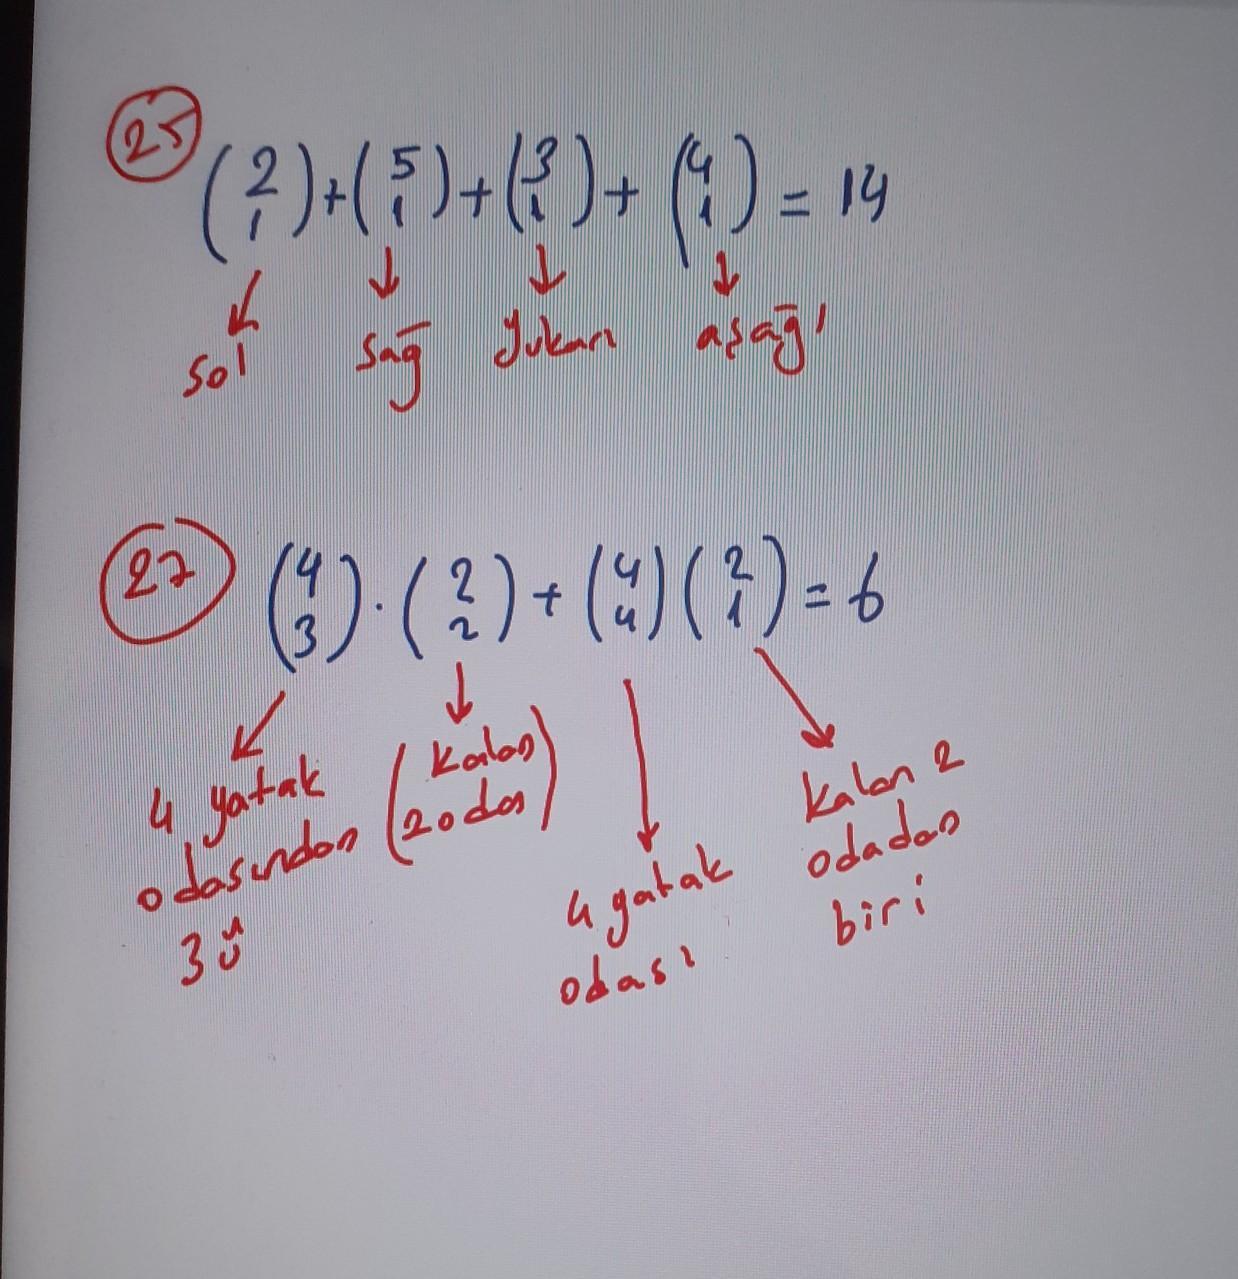 25
(2 1) + (5 1) + (3 1) + (4 1) = 14
sol sağ Yukarı aşağı
27
(4 3) . (2 2) + (4 4) (2 1) = 6
4 yatak odasından 3ü
(kalan 2 oda)
4 yatak odası
kalan 2 odadan biri